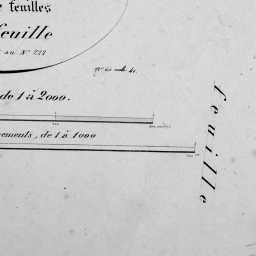 feuilles
feuille
au N° 222
de 1 à 2000.
ements, de 1 à 1000
feuille